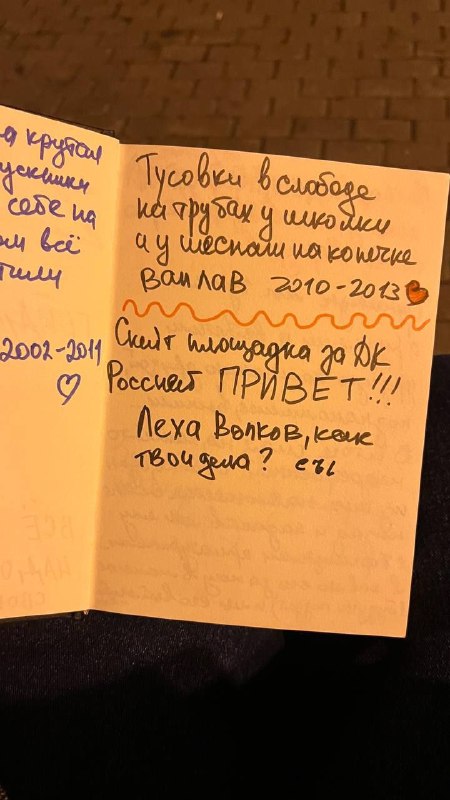 а крутал
себе на
ом всё
2002-2011
Тусовки в слободе
на трубах у школки
а у шеспом на конечке
вам лав 2010-2013
Скейт площадка за ДК
Россией ПРИВЕТ!!!
Леха Волков, как
твои дела?